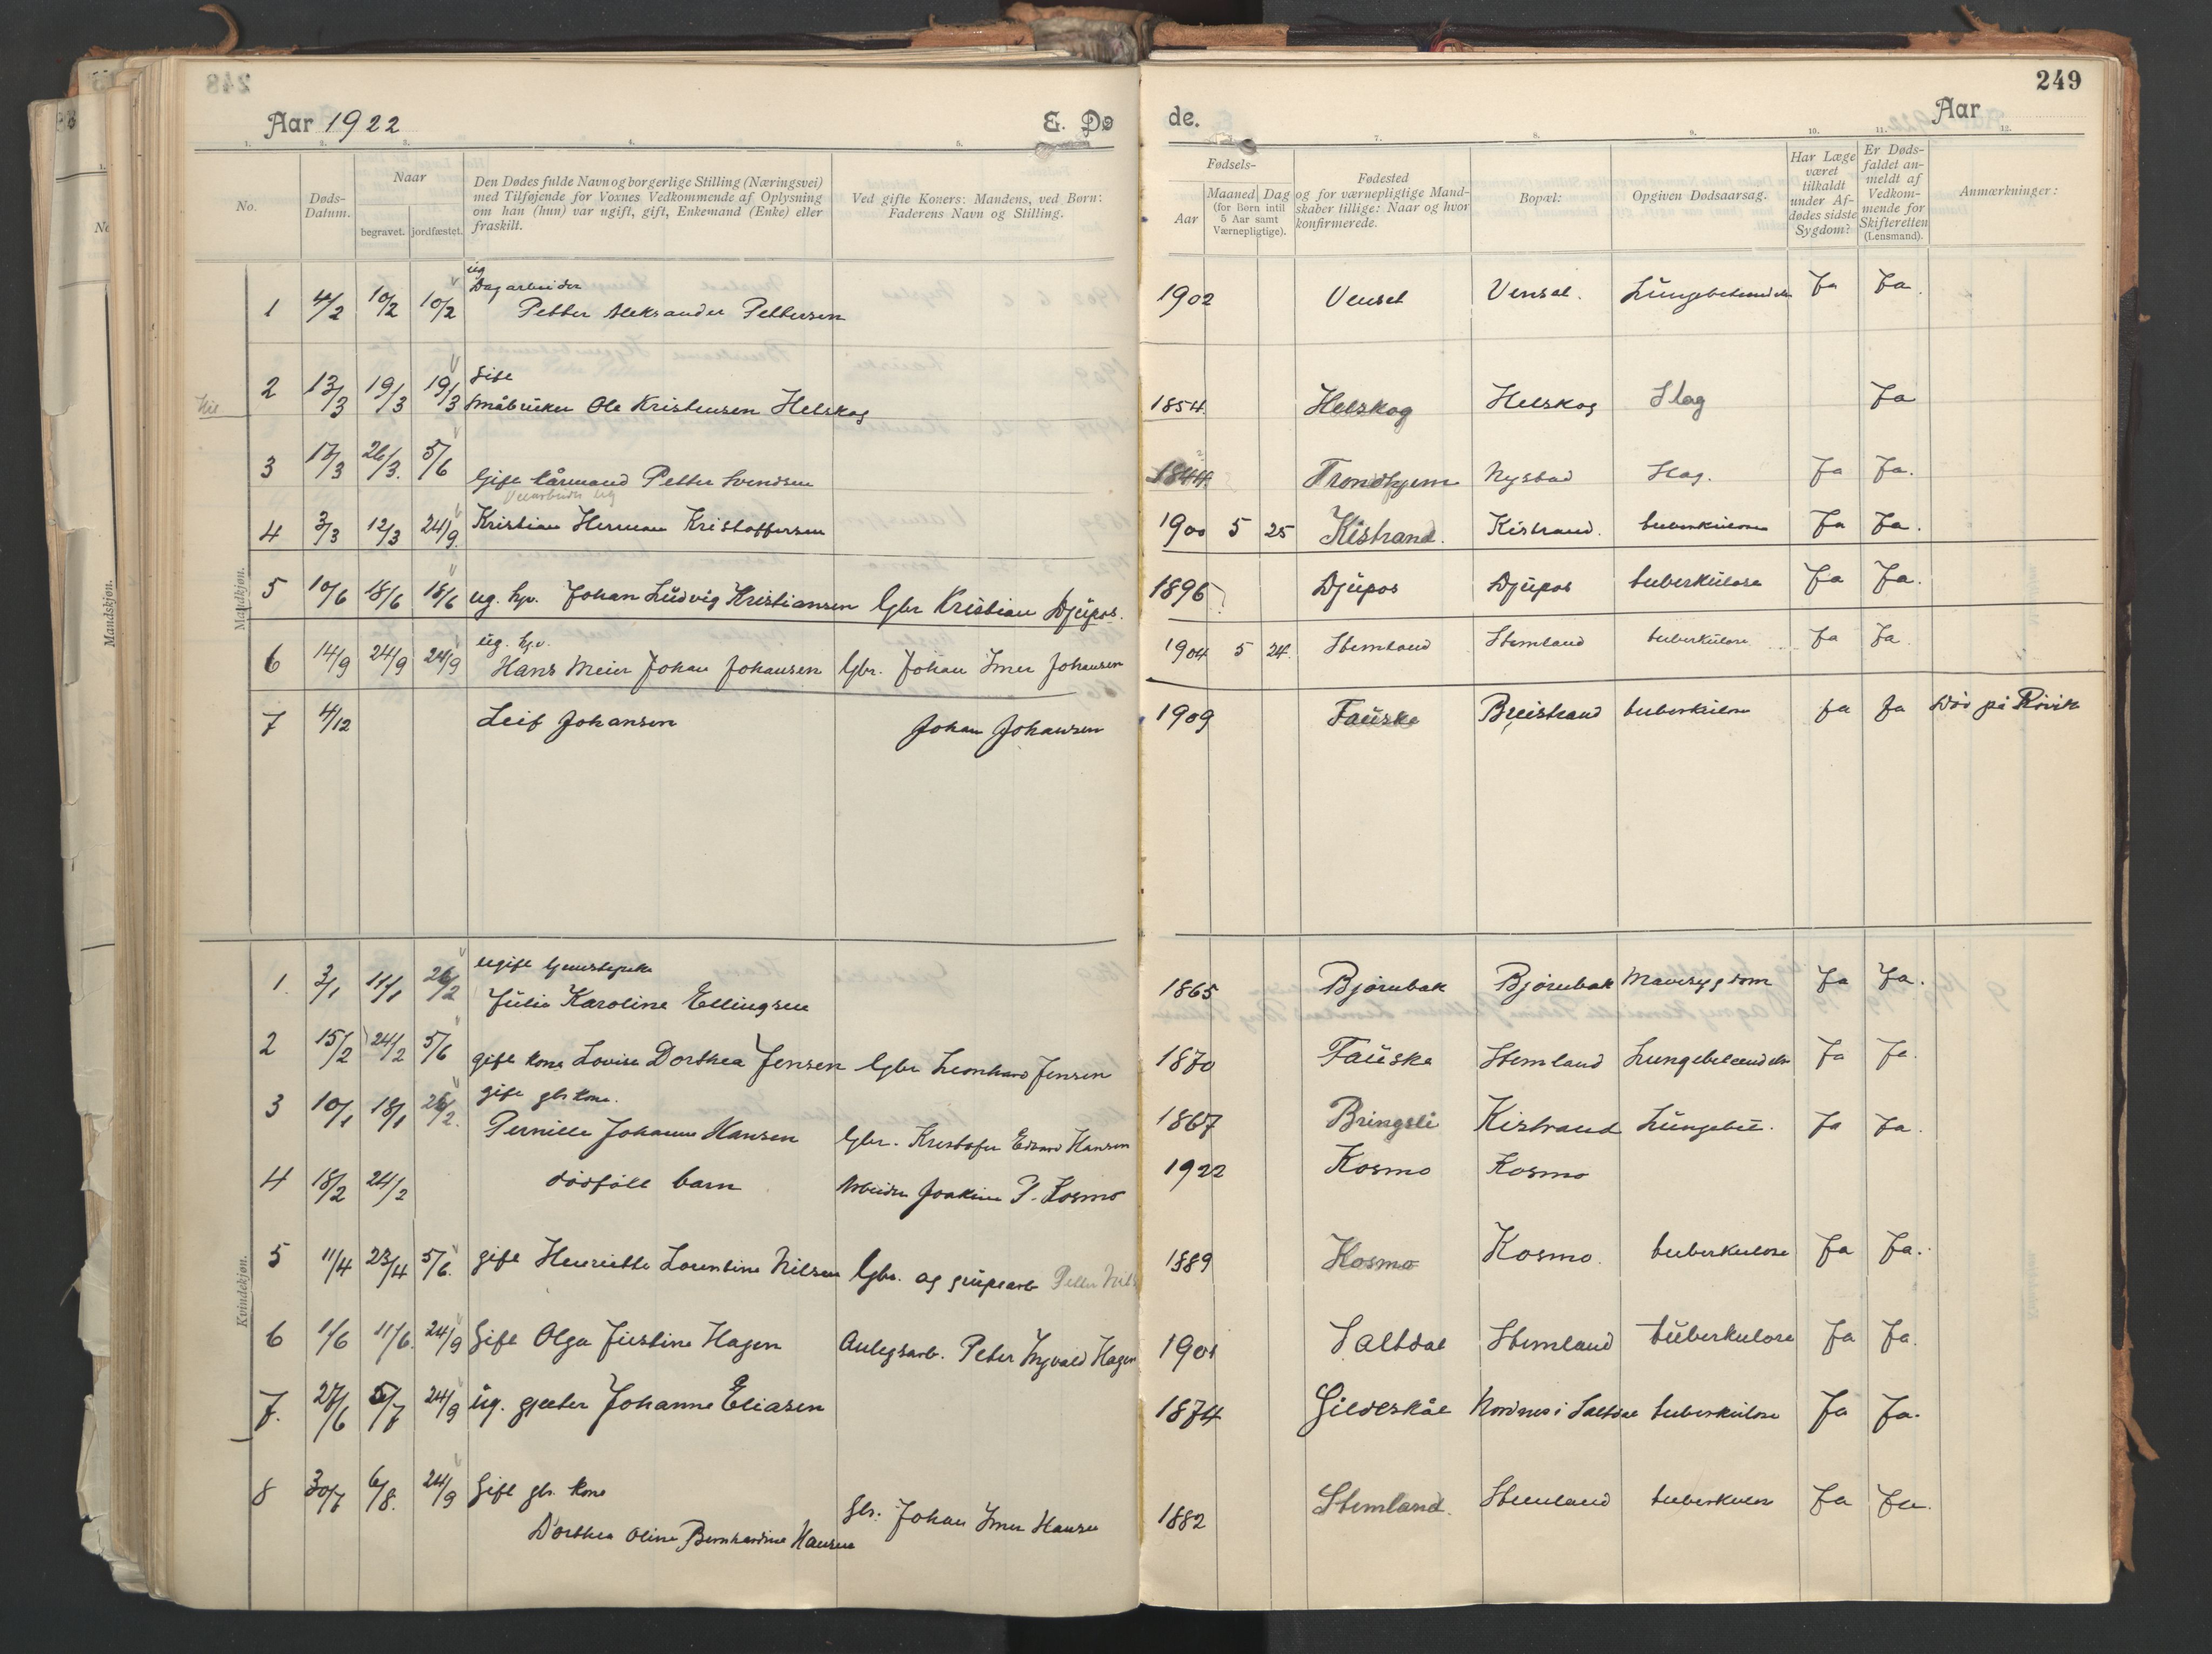 249
Aar 1922
E. Døde.
Aar
1. 2. 3. 4. 5. 7. 8. 9. 10. 11. 12.
No.
Døds-Datum.
Naar
begravet. jordfæstet.
Den Dødes fulde Navn og borgerlige Stilling (Næringsvei)
med Tilføjende for Voxnes Vedkommende af Oplysning
om han (hun) var ugift, gift, Enkemand (Enke) eller
fraskilt.
Ved gifte Koners: Mandens, ved Børn:
Faderens Navn og Stilling.
Fødsels-
Aar
Maaned Dag
(for Børn intil
5 Aar samt
Værnepligtige).
Fødested
og for værnepligtige Mand-
skaber tillige: Naar og hvor
konfirmerede.
Bopæl:
Opgiven Dødsaarsag.
Har Læge
været
tilkaldt
under Af-
dødes sidste
Sygdom?
Er Døds-
faldet an-
meldt af
Vedkom-
mende for
Skifteretten
(Lensmand).
Anmærkninger:
Mandkjøn.
ug
Dagarbeider
1 4/2 10/2 10/2 Petter Aleksander Pettersen 1902 Venset Venset. Lungebetændelse Ja Ja.
gift
2 13/3 19/3 19/3 Småbruker Ole Kristensen Helskog 1854. Helskog Helskog Slag Ja
3 17/3 26/3. 5/6 Gift kårmand Petter Svendsen 1844 Trondhjem Nystad Slag. Ja Ja.
Veiarbeider ug
4 3/3 12/3 24/9. Kristian Herman Kristoffersen 1900 5 25 Kistrand. Kistrand. tuberkulose Ja Ja.
5 10/6 18/6 18/6 ug. hjv. Johan Ludvig Kristiansen Gbr Kristian Djupos. 1896 Djupos Djupos tuberkulose Ja Ja.
ug. hjv.
6 14/9 24/9 24/9 Hans Meier Johan Johansen Gbr. Johan Imer Johansen 1904 5 24. Stemland Stemland tuberkulose Ja Ja.
7 4/12 Leif Johansen Johan Johansen 1909 Fauske Breistrand tuberkulose Ja Ja Død på Røvik
Kvindekjøn.
ugift
1. 3/1 11/1 26/2 Julie Karoline Ellingsen 1865 Bjørnbak Bjørnbak Mavesygdom Ja Ja.
2 15/2 24/2 5/6 gift kone Lovise Dorthea Jensen Gbr Leonhard Jensen 1870 Fauske Stemland Lungebetændelse Ja Ja.
gift gbr kone.
3 10/1 18/1 26/2. Pernille Johanne Hansen Gbr. Kristofer Edvard Hansen 1867 Bringsli Kistrand Lungebet. Ja Ja.
4 18/2 24/2 dødfødt barn Arbeider Joakim P. Kosmo 1922 Kosmo Kosmo
5 11/4 23/4 5/6. gift Henriette Lorentine Nilsen Gbr. og grubearb Petter Nils 1889 Kosmo Kosmo. tuberkulose Ja Ja.
6 1/6 11/6. 24/9 Gift Olga Justine Hagen Anlegsarb. Peter Ingvald Hagen 1901 Saltdal Stemland tuberkulose Ja Ja.
7. 27/6 5/7 24/9 ug. gjeter Johanne Eliasen 1874 Gildeskål Nordnes i Saltdal tuberkulose Ja Ja.
8 30/7 6/8. 24/9 Gift gbr. kone
Dorthea Oline Bernhardine Hansen Gbr. Johan Imer Hansen 1882 Stemland. Stemland tuberkulose Ja Ja.